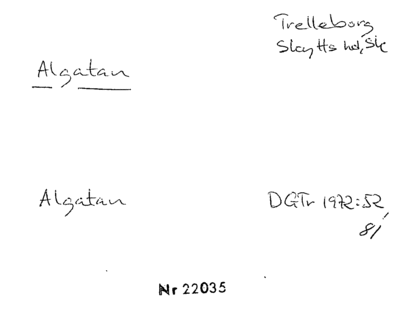 Trelleborg
Skytts hd, Sk
Algatan
Algatan
DGTr 1972:52,
81
Nr 22035